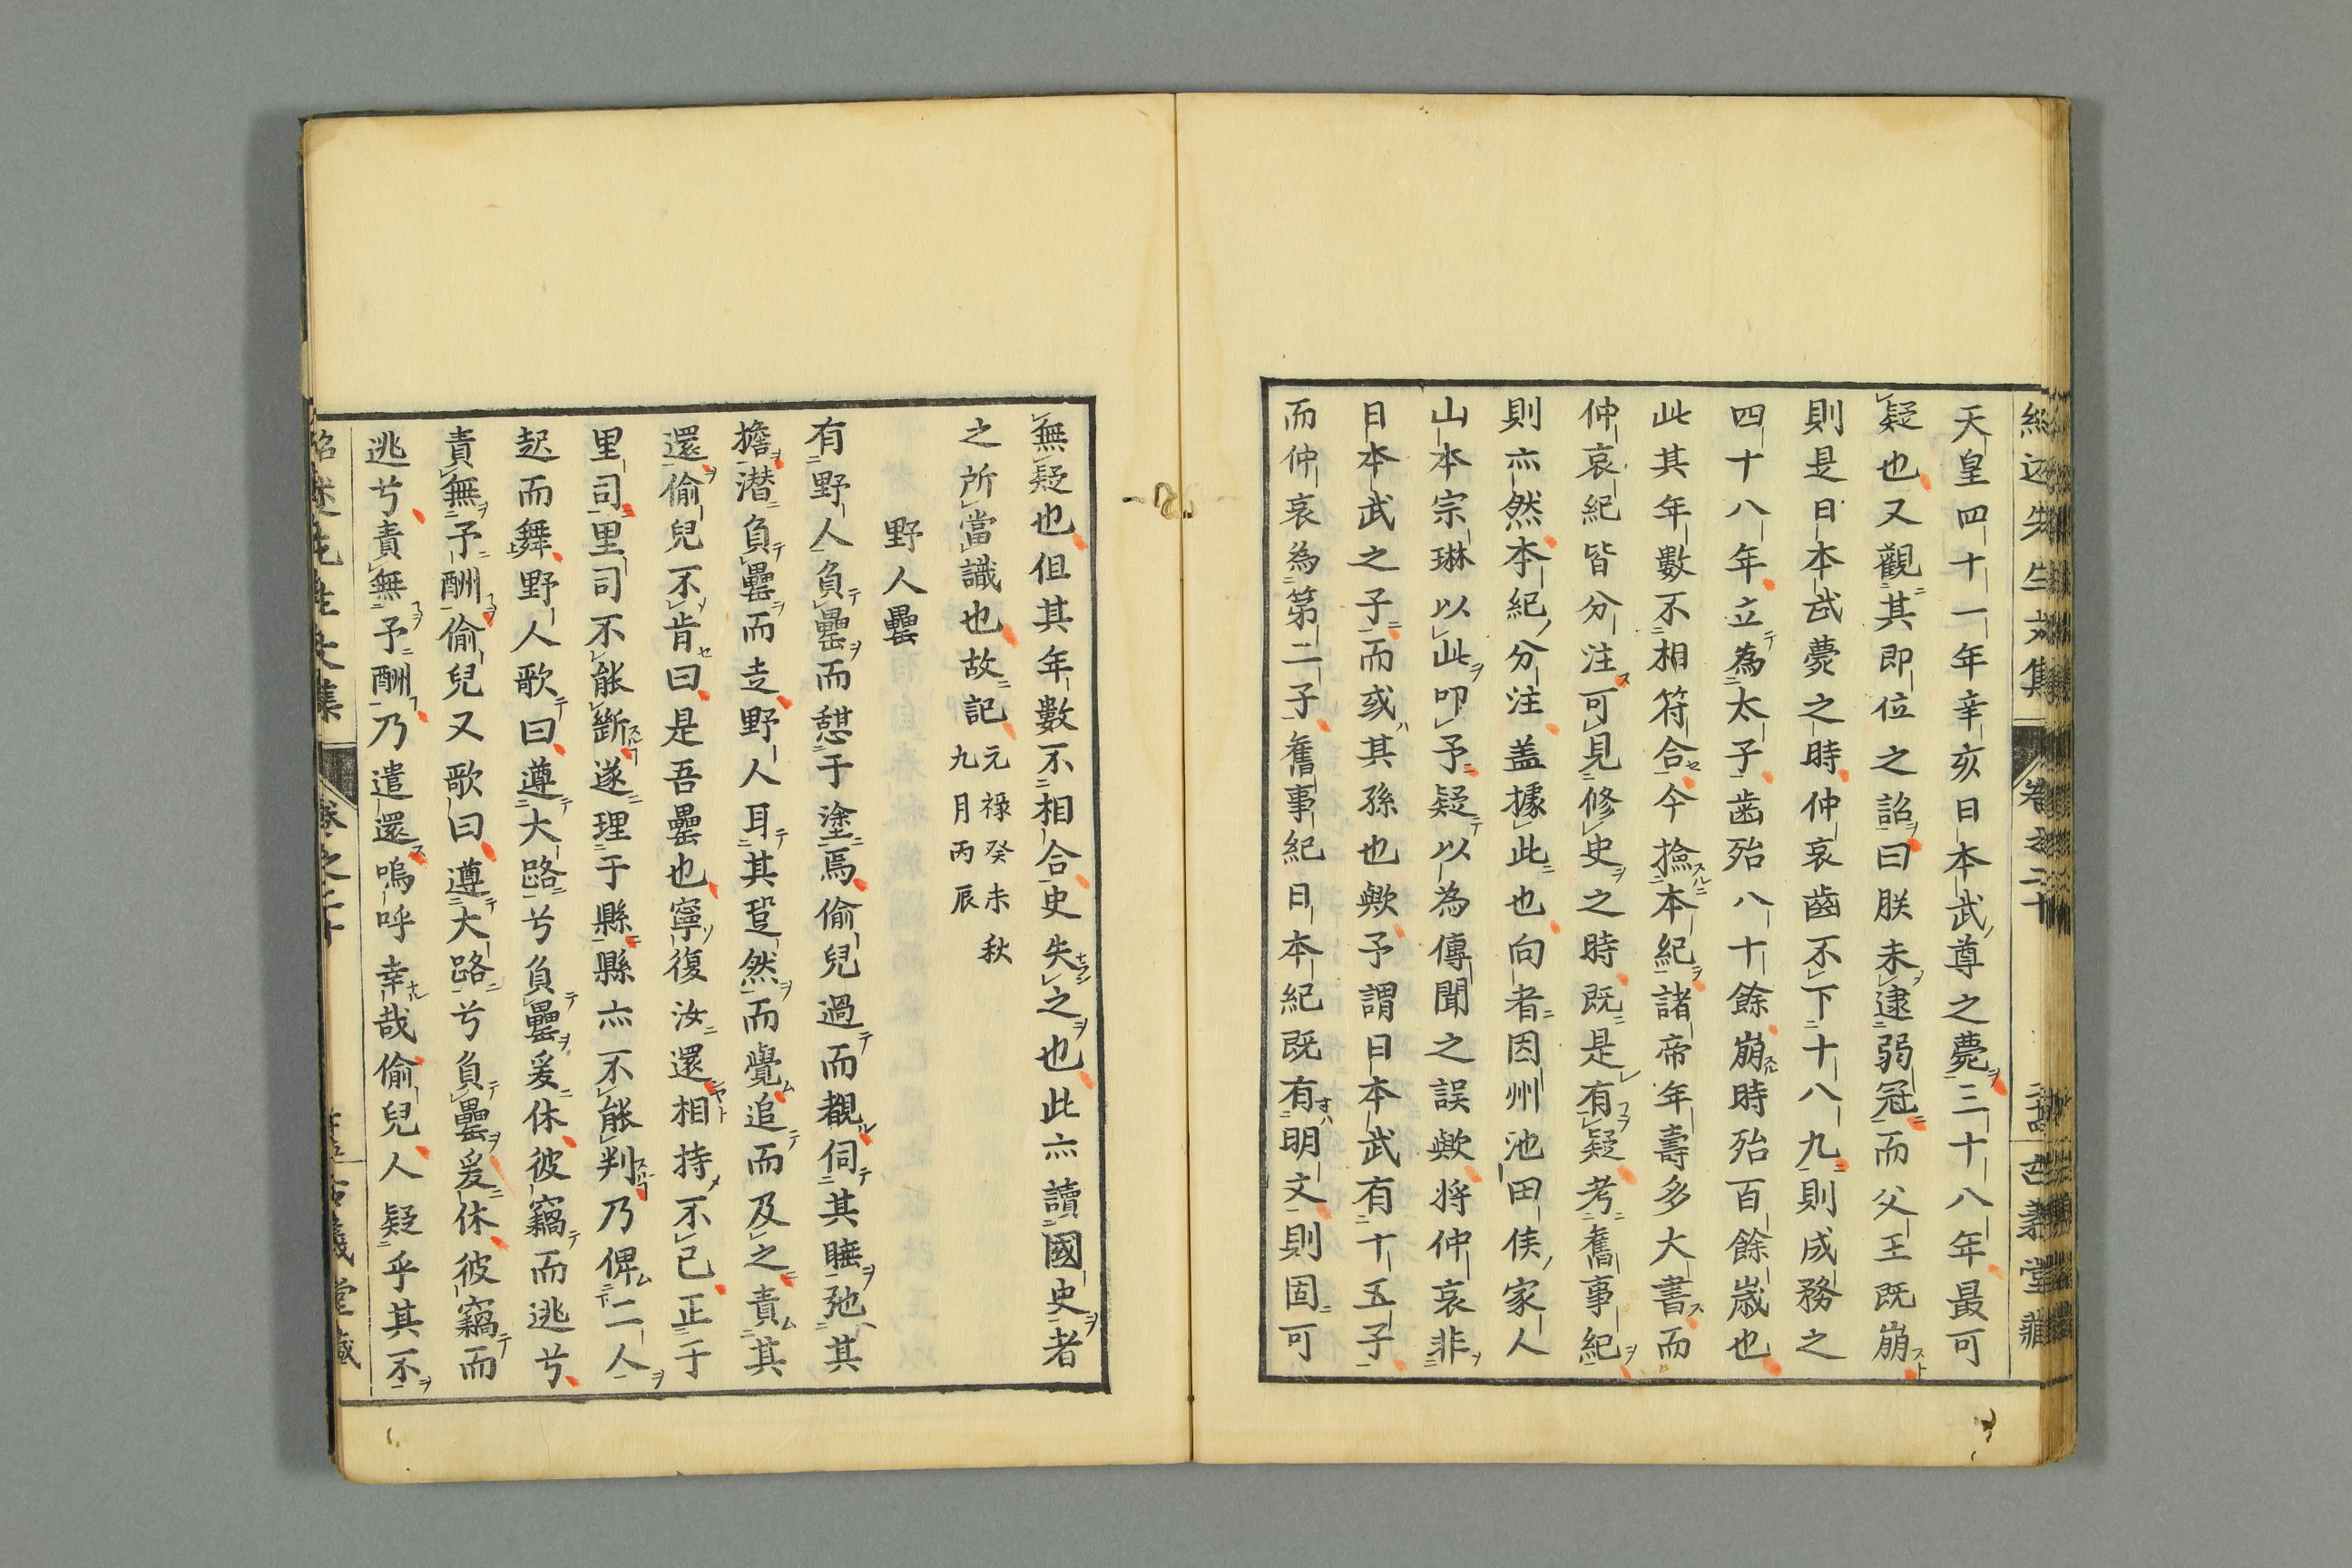 紹述先生文集 卷之二十 古義堂藏
天皇四十一年辛亥日本武尊之薨三十八年最可
疑也又觀其即位之詔曰朕未逮弱冠而父王既崩
則是日本武薨之時仲哀齒不下十八九則成務之
四十八年立為太子齒殆八十餘崩時殆百餘歲也
此其年數不相符合今撿本紀諸帝年壽多大書而
仲哀紀皆分注可見修史之時既是有疑考舊事紀
則亦然本紀分注盖據此也向者因州池田侯家人
山本宗琳以此叩予疑以為傳聞之誤歟将仲哀非
日本武之子而或其孫也歟予謂日本武有十五子
而仲哀為第二子舊事紀日本紀既有明文則固可
無疑也但其年數不相合史失之也此亦讀國史者
之所當識也故記元禄癸未秋
九月丙辰
野人罍
有野人負罍而憇于塗焉偷兒過而覩伺其睡弛其
擔潜負罍而走野人耳其跫然而覺追而及之責其
還偷兒不肯曰是吾罍也寧復汝還相持不已正于
里司里司不能斷遂理于縣縣亦不能判乃俾二人
起而舞野人歌曰遵大路兮負罍爰休彼竊而逃兮
責無予酬偷兒又歌曰遵大路兮負罍爰休彼竊而
逃兮責無予酬乃遣還嗚呼幸哉偷兒人疑乎其不
紹述先生文集 卷之二十 古義堂藏